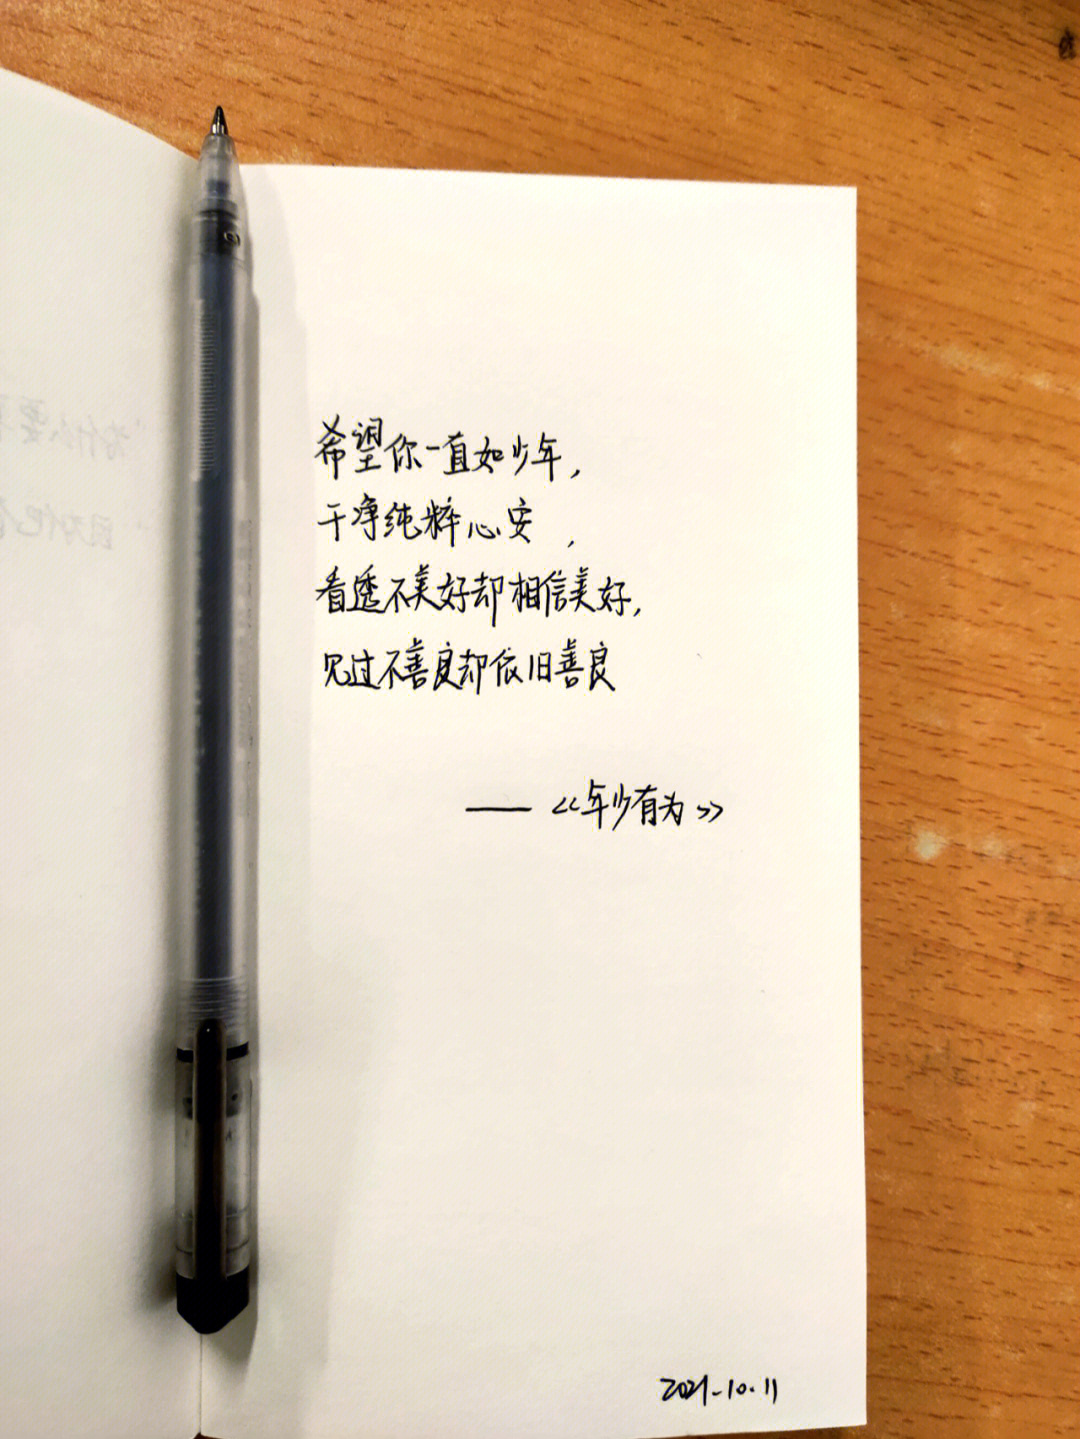 希望你一直如少年，
干净纯粹心安，
看透不美好却相信美好，
见过不善良却依旧善良
——《年少有为》
2021-10.11